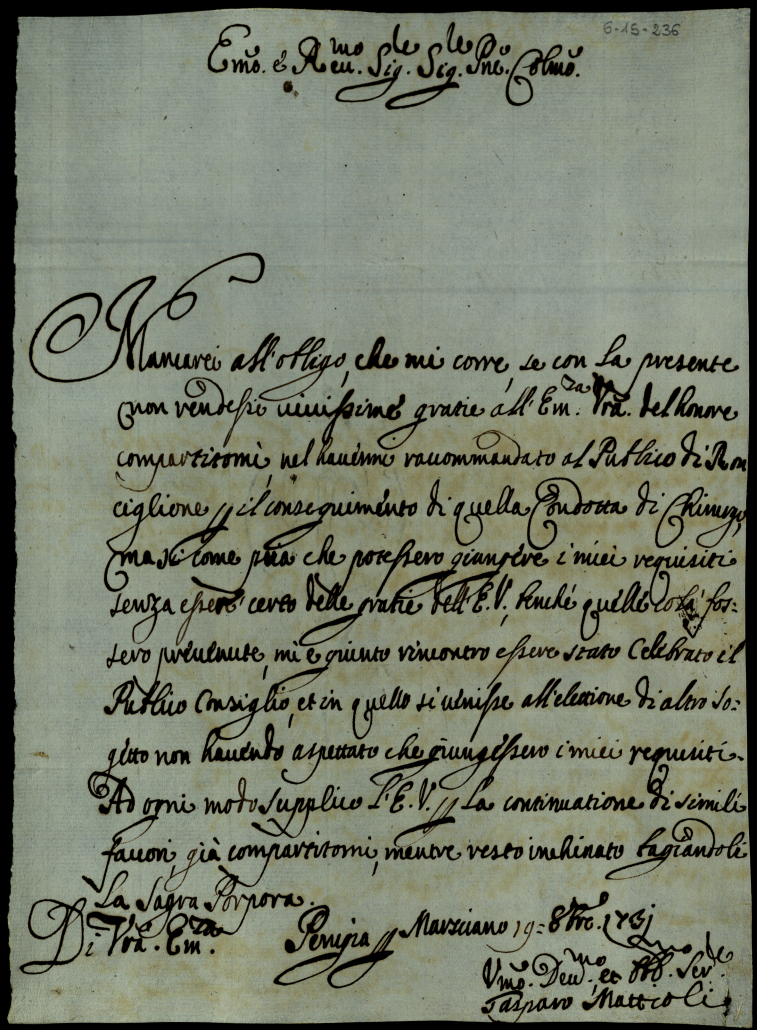 6-15-236
Emo. é Reu.mo Sig.le Sig.le Pnē. Colmo.
Mancarei all'obligo, che mi corre, se con la presente
non rendessi uiuissime gratie all'Em.za Vra. del honore
compartitomi, nel hauermi raccommandato al Publico di Ron
ciglione il conseguimento di quella Condotta di Chirurgo,
ma si come pria che potessero giungere i miei requisiti
senza essere certo delle gratie dell'E.V., benché quelle colà fos=
sero preuenute, mi è giunto rincontro essere stato Celebrato il
Publico Consiglio, et in quello si uenisse all'elettione di altro So=
getto non hauendo aspettato che giungessero i miei requisiti.
Ad ogni modo supplico L'E.V. La continuatione di simili
fauori, già compartitomi, mentre resto inchinato bagiandoli
La Sagra Porpora.
Di Vra. Em.za Perugia Marsciano 19= 8bre. 1731
Vmo. Deu.mo et Obb.mo Ser.de
Gasparo Mattioli